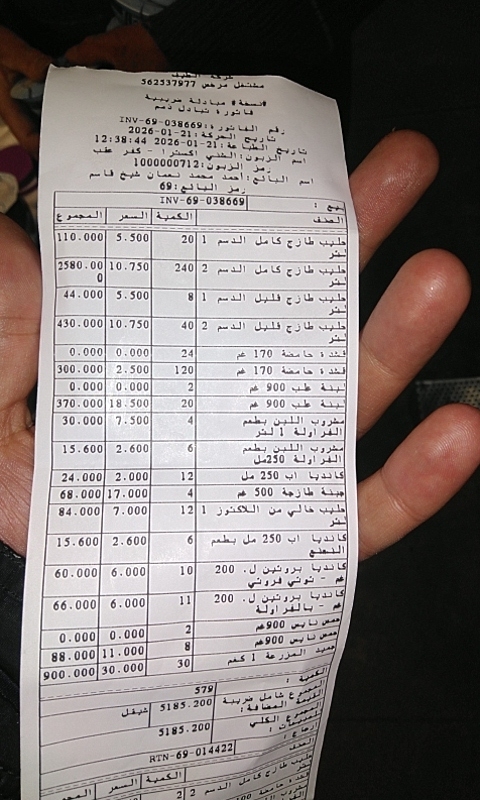 شركة الطيف
مشتغل مرخص 562537977
#نسخة# مبادلة ضريبية
فاتورة تبادل ذمم
رقم الفاتورة: INV-69-038669
تاريخ الحركة: 2026-01-21
تاريخ الطباعة: 2026-01-21 12:38:44
اسم الزبون: الشني اكسترا - كفر عقب
رمز الزبون: 1000000712
اسم البائع: احمد محمد نعمان شيخ قاسم
رمز البائع: 69
بيع : INV-69-038669
الصنف الكمية السعر المجموع
حليب طازج كامل الدسم 1 لتر 20 5.500 110.000
حليب طازج كامل الدسم 2 لتر 240 10.750 2580.000
حليب طازج قليل الدسم 1 لتر 8 5.500 44.000
حليب طازج قليل الدسم 2 لتر 40 10.750 430.000
قشدة حامضة 170 غم 24 0.000 0.000
قشدة حامضة 170 غم 120 2.500 300.000
لبنة علب 900 غم 2 0.000 0.000
لبنة علب 900 غم 20 18.500 370.000
مشروب اللبن بطعم الفراولة 1 لتر 4 7.500 30.000
مشروب اللبن بطعم الفراولة 250مل 6 2.600 15.600
كانديا اب 250 مل 12 2.000 24.000
جبنة طازجة 500 غم 4 17.000 68.000
حليب خالي من اللاكتوز 1 لتر 12 7.000 84.000
كانديا اب 250 مل بطعم النعنع 6 2.600 15.600
كانديا بروتين ل. 200 غم - توتي فروتي 10 6.000 60.000
كانديا بروتين ل. 200 غم - بالفراولة 11 6.000 66.000
حمص نايس 900غم 2 0.000 0.000
حمص نايس 900غم 8 11.000 88.000
جميد المزرعة 1 كغم 30 30.000 900.000
الكمية : 579
المجموع شامل ضريبة
القيمة المضافة: 5185.200 شيقل
المجموع الكلي
5185.200
RTN-69-014422
الصنف الكمية السعر المجموع
حليب طازج كامل الدسم 2